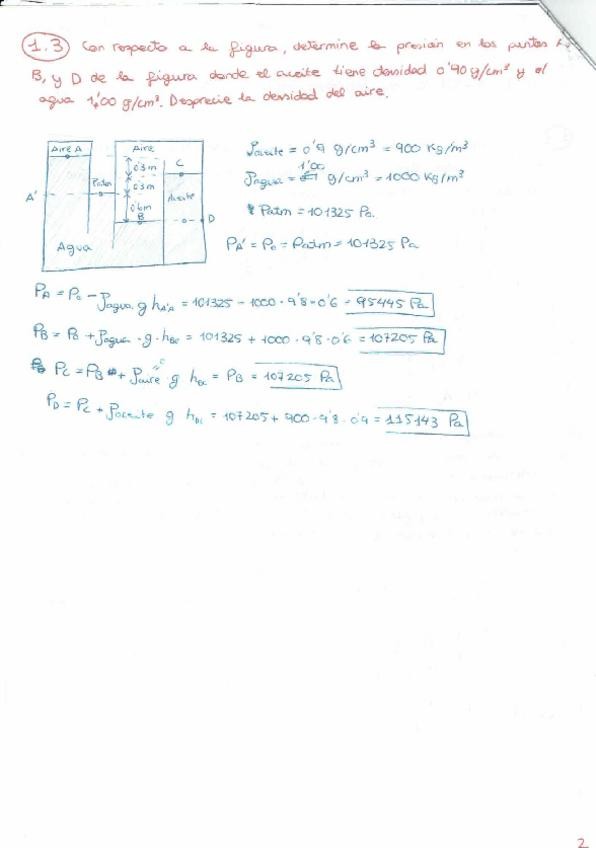 1.3 Con respecto a la figura, determine la presión en los puntos
B, y D de la figura donde el aceite tiene densidad 0'90 g/cm³ y el
agua 1'00 g/cm³. Desprecie la densidad del aire.
Aire A
Aire
0'3m
C
ρaceite = 0'9 g/cm³ = 900 Kg/m³
Patm
0'3m
Aceite
ρagua = 1'00 g/cm³ = 1000 Kg/m³
A'
0'6m
B
D
Patm = 101325 Pa.
Agua
PA' = P0 = Patm = 101325 Pa
PA = P0 - ρagua g hA'A = 101325 - 1000 · 9'8 · 0'6 = 95445 Pa
PB = P0 + ρagua · g · = 101325 + 1000 · 9'8 · 0'6 = 107205 Pa
PC = PB + ρaire g hBC = PB = 107205 Pa
PD = PC + ρaceite g hDC = 107205 + 900 · 9'8 · 0'9 = 115143 Pa
2